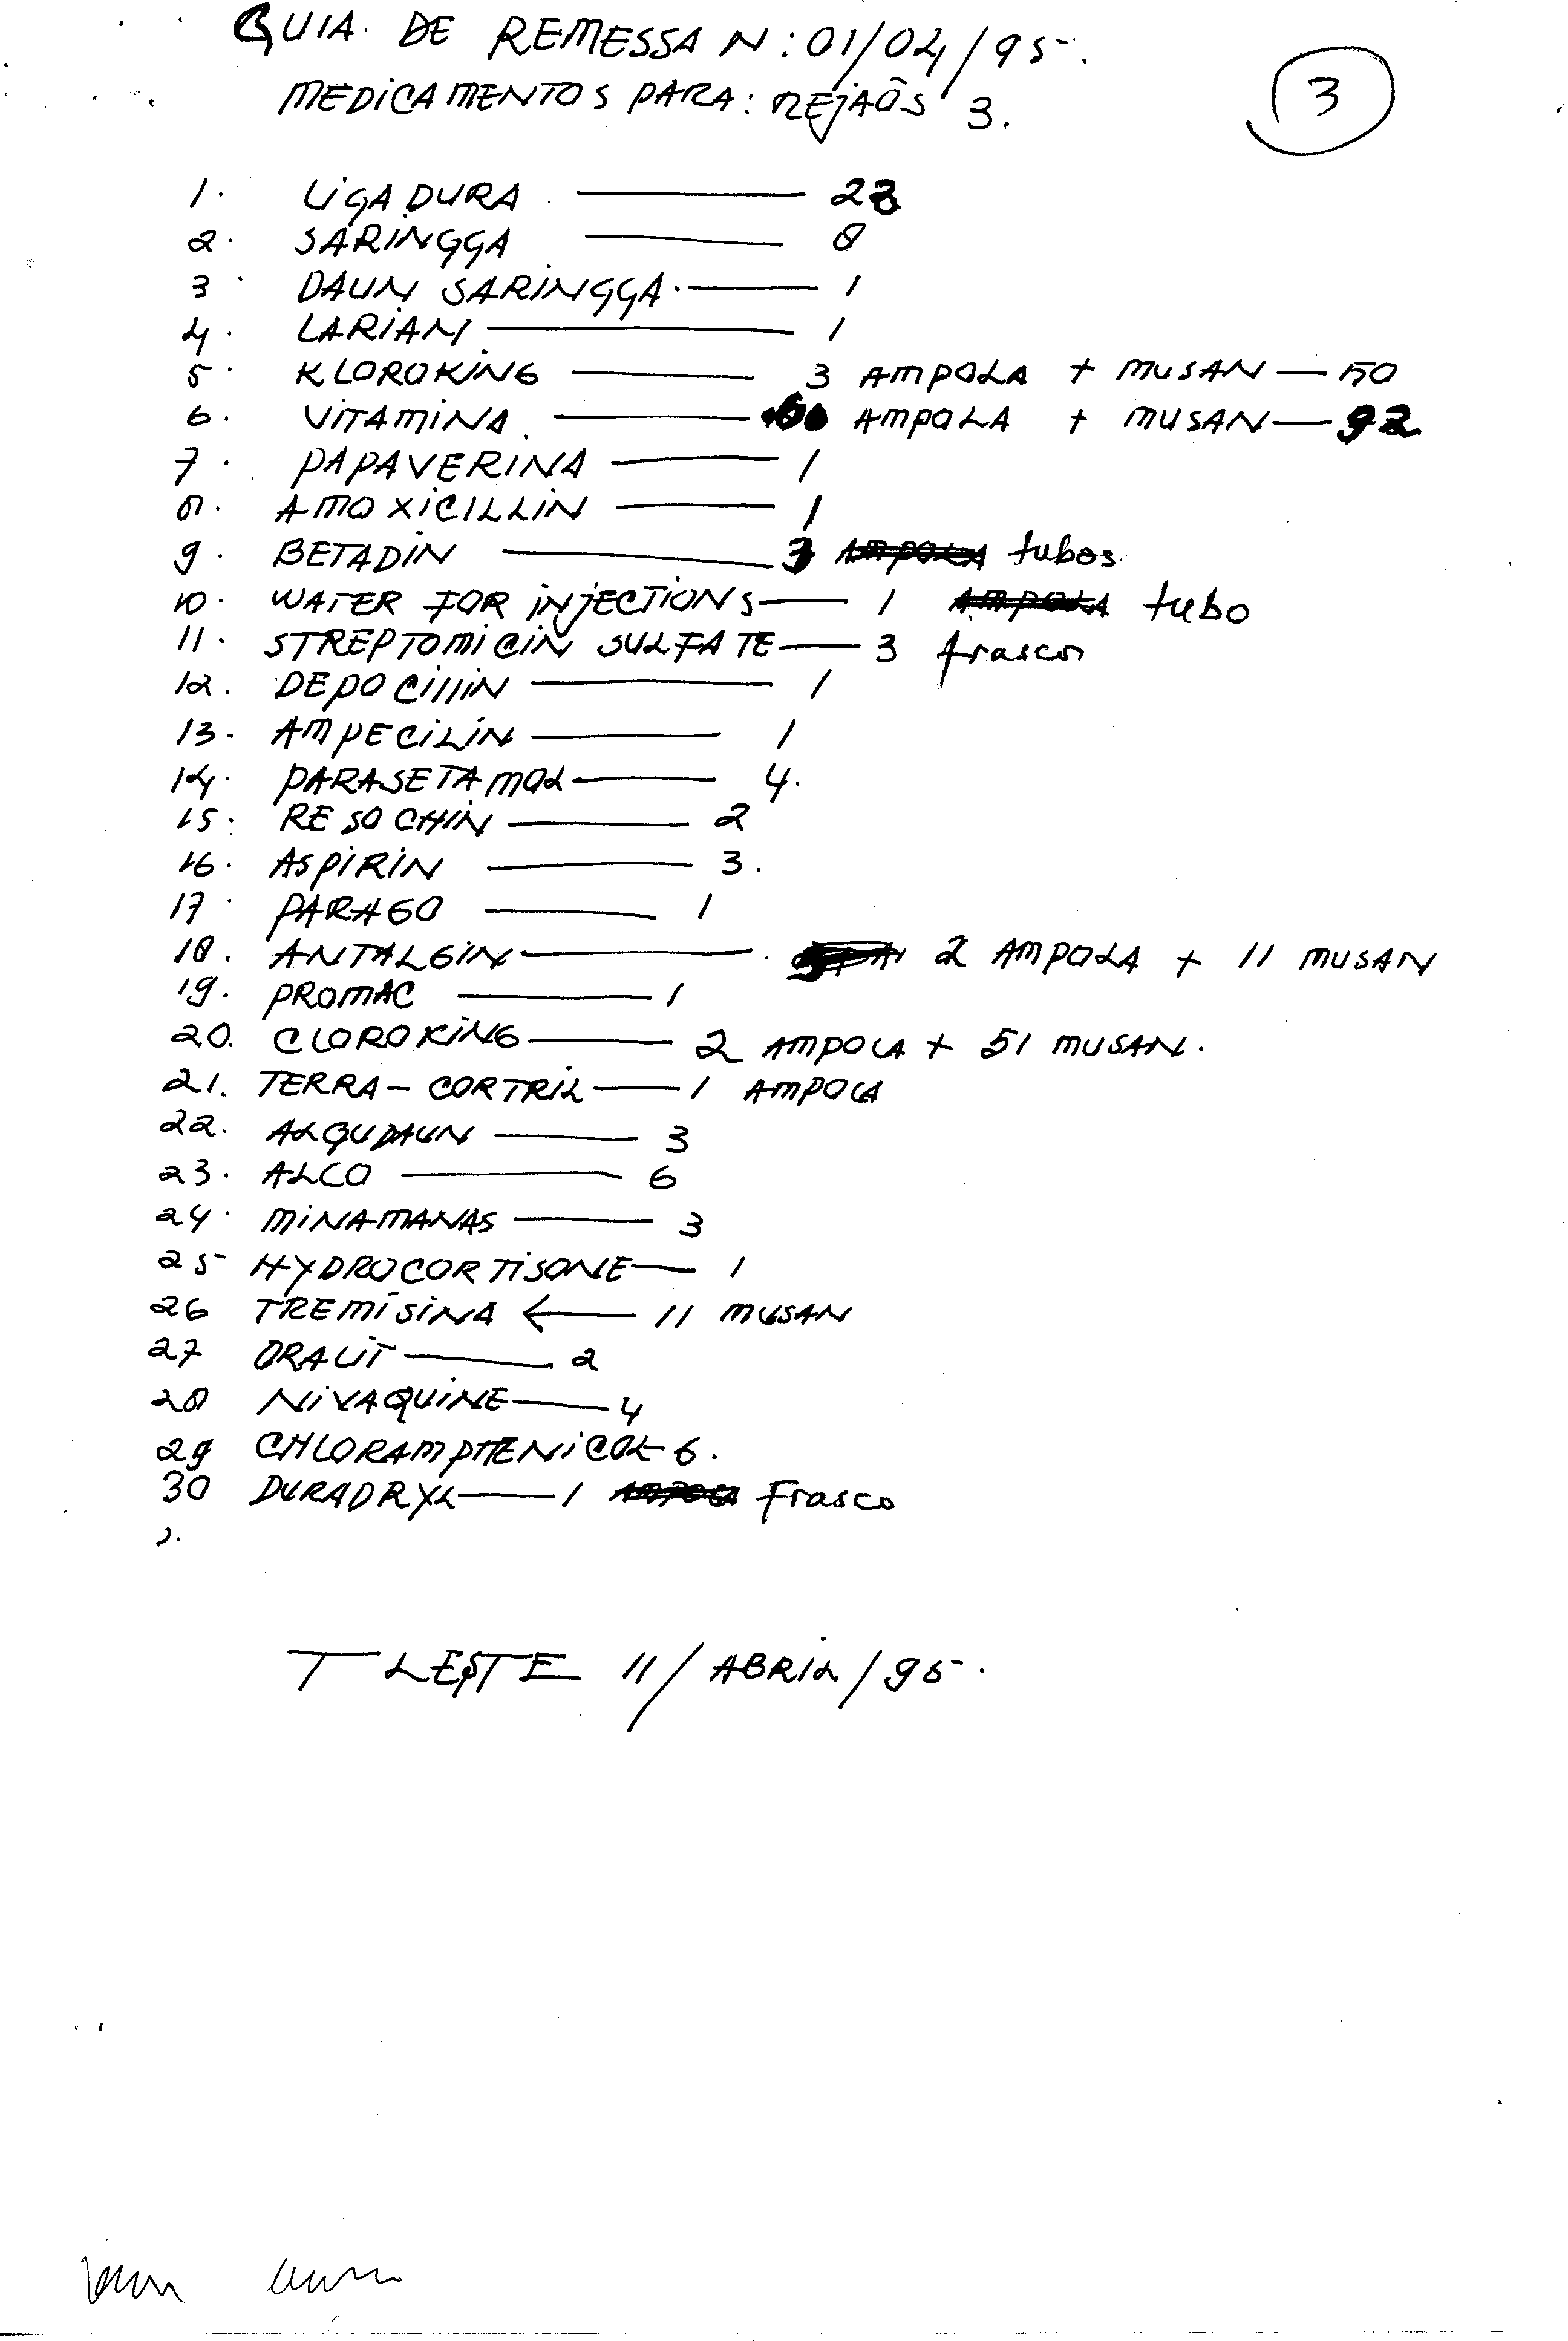 GUIA. DE REMESSA N: 01/04/95.
MEDICAMENTOS PARA: REJAÕS 3.
3
1. LIGADURA — 23
2. SARINGGA — 8
3. DAUN SARINGGA. — 1
4. LARIAM — 1
5. KLOROKING — 3 AMPOLA + MUSAN — 50
6. VITAMINA. — 60 AMPOLA + MUSAN — 92
7. PAPAVERINA — 1
8. AMOXICILLIN — 1
9. BETADIN — 3 AMPOLA tubos
10. WATER FOR INJECTIONS — 1 AMPOLA tubo
11. STREPTOMICIN SULFATE — 3 frasco
12. DEPOCILLIN — 1
13. AMPECILIN — 1
14. PARASETAMOL — 4.
15. RESOCHIN — 2
16. ASPIRIN — 3.
17. PARAGO — 1
18. ANTALGIN — 2 AMPOLA + 11 MUSAN
19. PROMAC — 1
20. CLOROKING — 2 AMPOLA + 51 MUSAN.
21. TERRA-CORTRIL — 1 AMPOLA
22. ALGUDAUN — 3
23. ALCO — 6
24. MINAMANAS — 3
25 HYDROCORTISONE — 1
26 TREMISINA ← 11 MUSAN
27 ORALIT — 2
28 NIVAQUINE — 4
29 CHLORAMPHENICOL — 6.
30 DURADRYL — 1 AMPOLA Frasco
T LESTE 11/ABRIL/95.